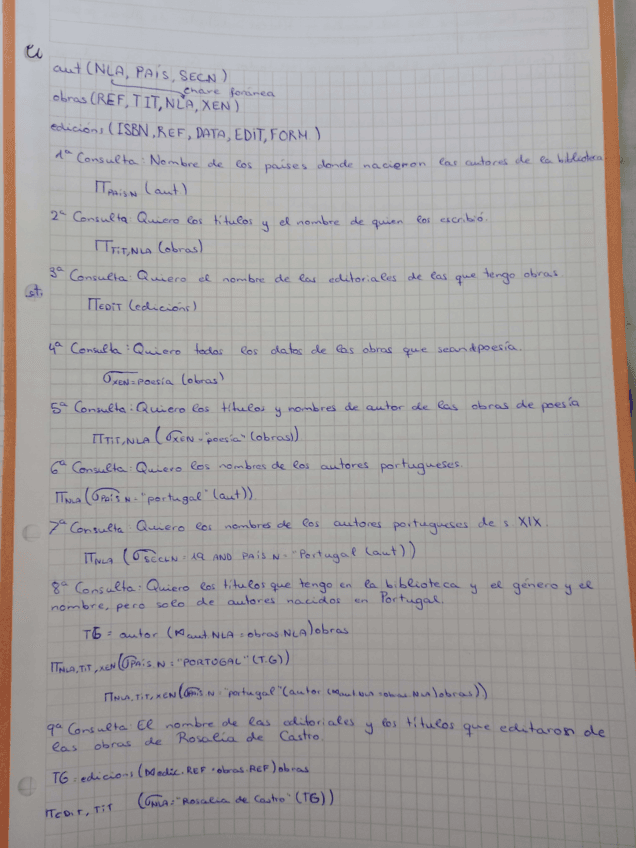 aut (NLA, PAÍS, SECN)
chave foránea
obras (REF, TIT, NLA, XEN)
edicións (ISBN, REF, DATA, EDIT, FORM)
1ª Consulta: Nombre de los países donde nacieron los autores de la biblioteca
π PAIS N (aut)
2ª Consulta: Quiero los títulos y el nombre de quien los escribió.
π TIT, NLA (obras)
3ª Consulta: Quiero el nombre de las editoriales de las que tengo obras.
π EDIT (edicións)
4ª Consulta: Quiero todos los datos de las obras que sean poesía.
σ XEN = poesía (obras)
5ª Consulta: Quiero los títulos y nombres de autor de las obras de poesía
π TIT, NLA (σ XEN = "poesía" (obras))
6ª Consulta: Quiero los nombres de los autores portugueses.
π NLA (σ PAÍS N = "portugal" (aut))
7ª Consulta: Quiero los nombres de los autores portugueses de s. XIX.
π NLA (σ SECLN = 19 AND PAÍS N = "Portugal (aut))
8ª Consulta: Quiero los títulos que tengo en la biblioteca y el género y el
nombre, pero solo de autores nacidos en Portugal.
TG = autor (⋈ aut.NLA = obras.NLA) obras
π NLA, TIT, XEN (σ PAÍS N = "PORTUGAL" (T.G))
π NLA, TIT, XEN (σ PAÍS N = "portugal" (autor (⋈ aut.NLA = obras.NLA) obras))
9ª Consulta: El nombre de las editoriales y los títulos que editaron de
las obras de Rosalía de Castro.
TG = edicions (⋈ edic.REF = obras.REF) obras
π EDIT, TIT (σ NLA = "Rosalia de Castro" (TG))